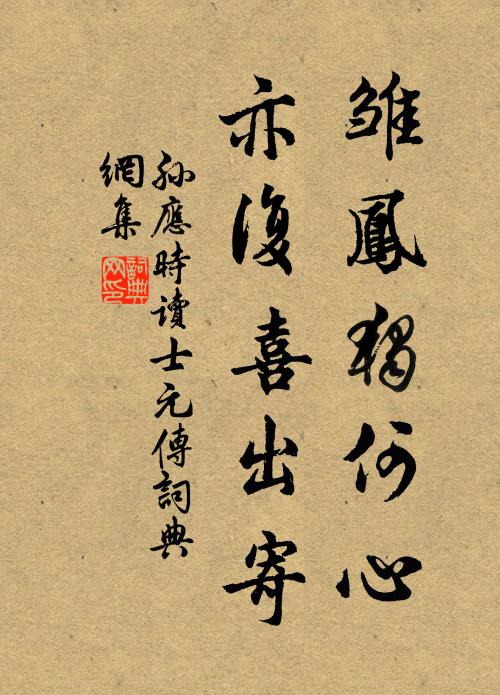 雏鳳獨何心
亦復喜出寄
孫應時讀士元傳詞典
網集
詞典網印